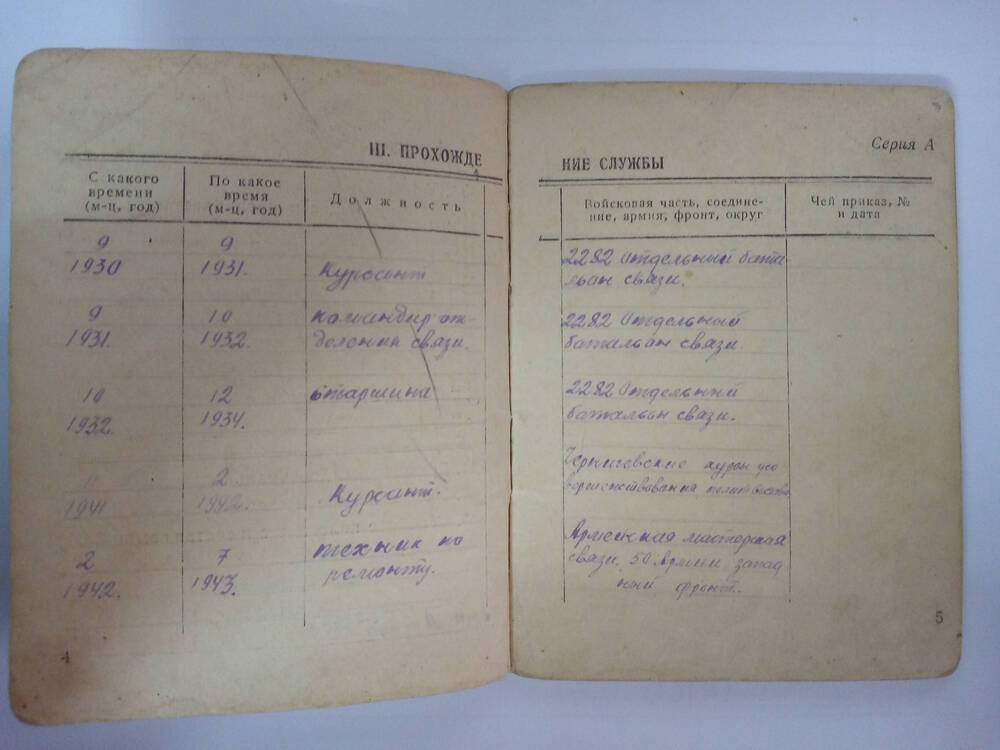 III. ПРОХОЖДЕ
С какого
времени
(м-ц, год)
По какое
время
(м-ц, год)
Должность
9
1930
9
1931.
Курсант
9
1931.
10
1932.
командир от-
деления связи.
10
1932.
12
1934.
Старшина
11
1941
2
1942.
Курсант.
2
1942.
7
1943.
техник по
ремонту.
4
Серия А
НИЕ СЛУЖБЫ
Войсковая часть, соедине-
ние, армия, фронт, округ
Чей приказ, №
и дата
2282 Отдельный бата-
льан связи.
2282 Отдельный
батальан связи.
2282 Отдельный
батальан связи.
Черниговские курсы усо
вершенствования
Армейская мастерская
связи, 50 Армии запад
ный фронт.
5